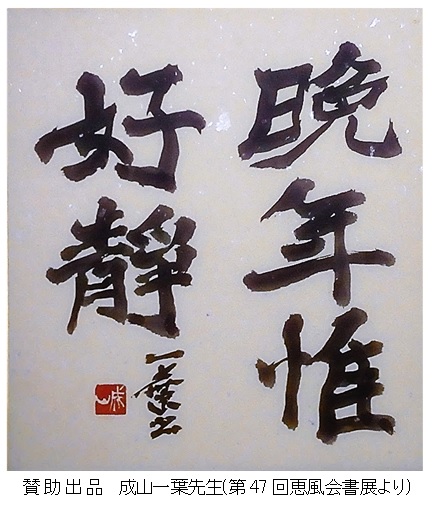 晩年惟
好靜
一葉書
成山
賛助出品 成山一葉先生(第47回恵風会書展より)